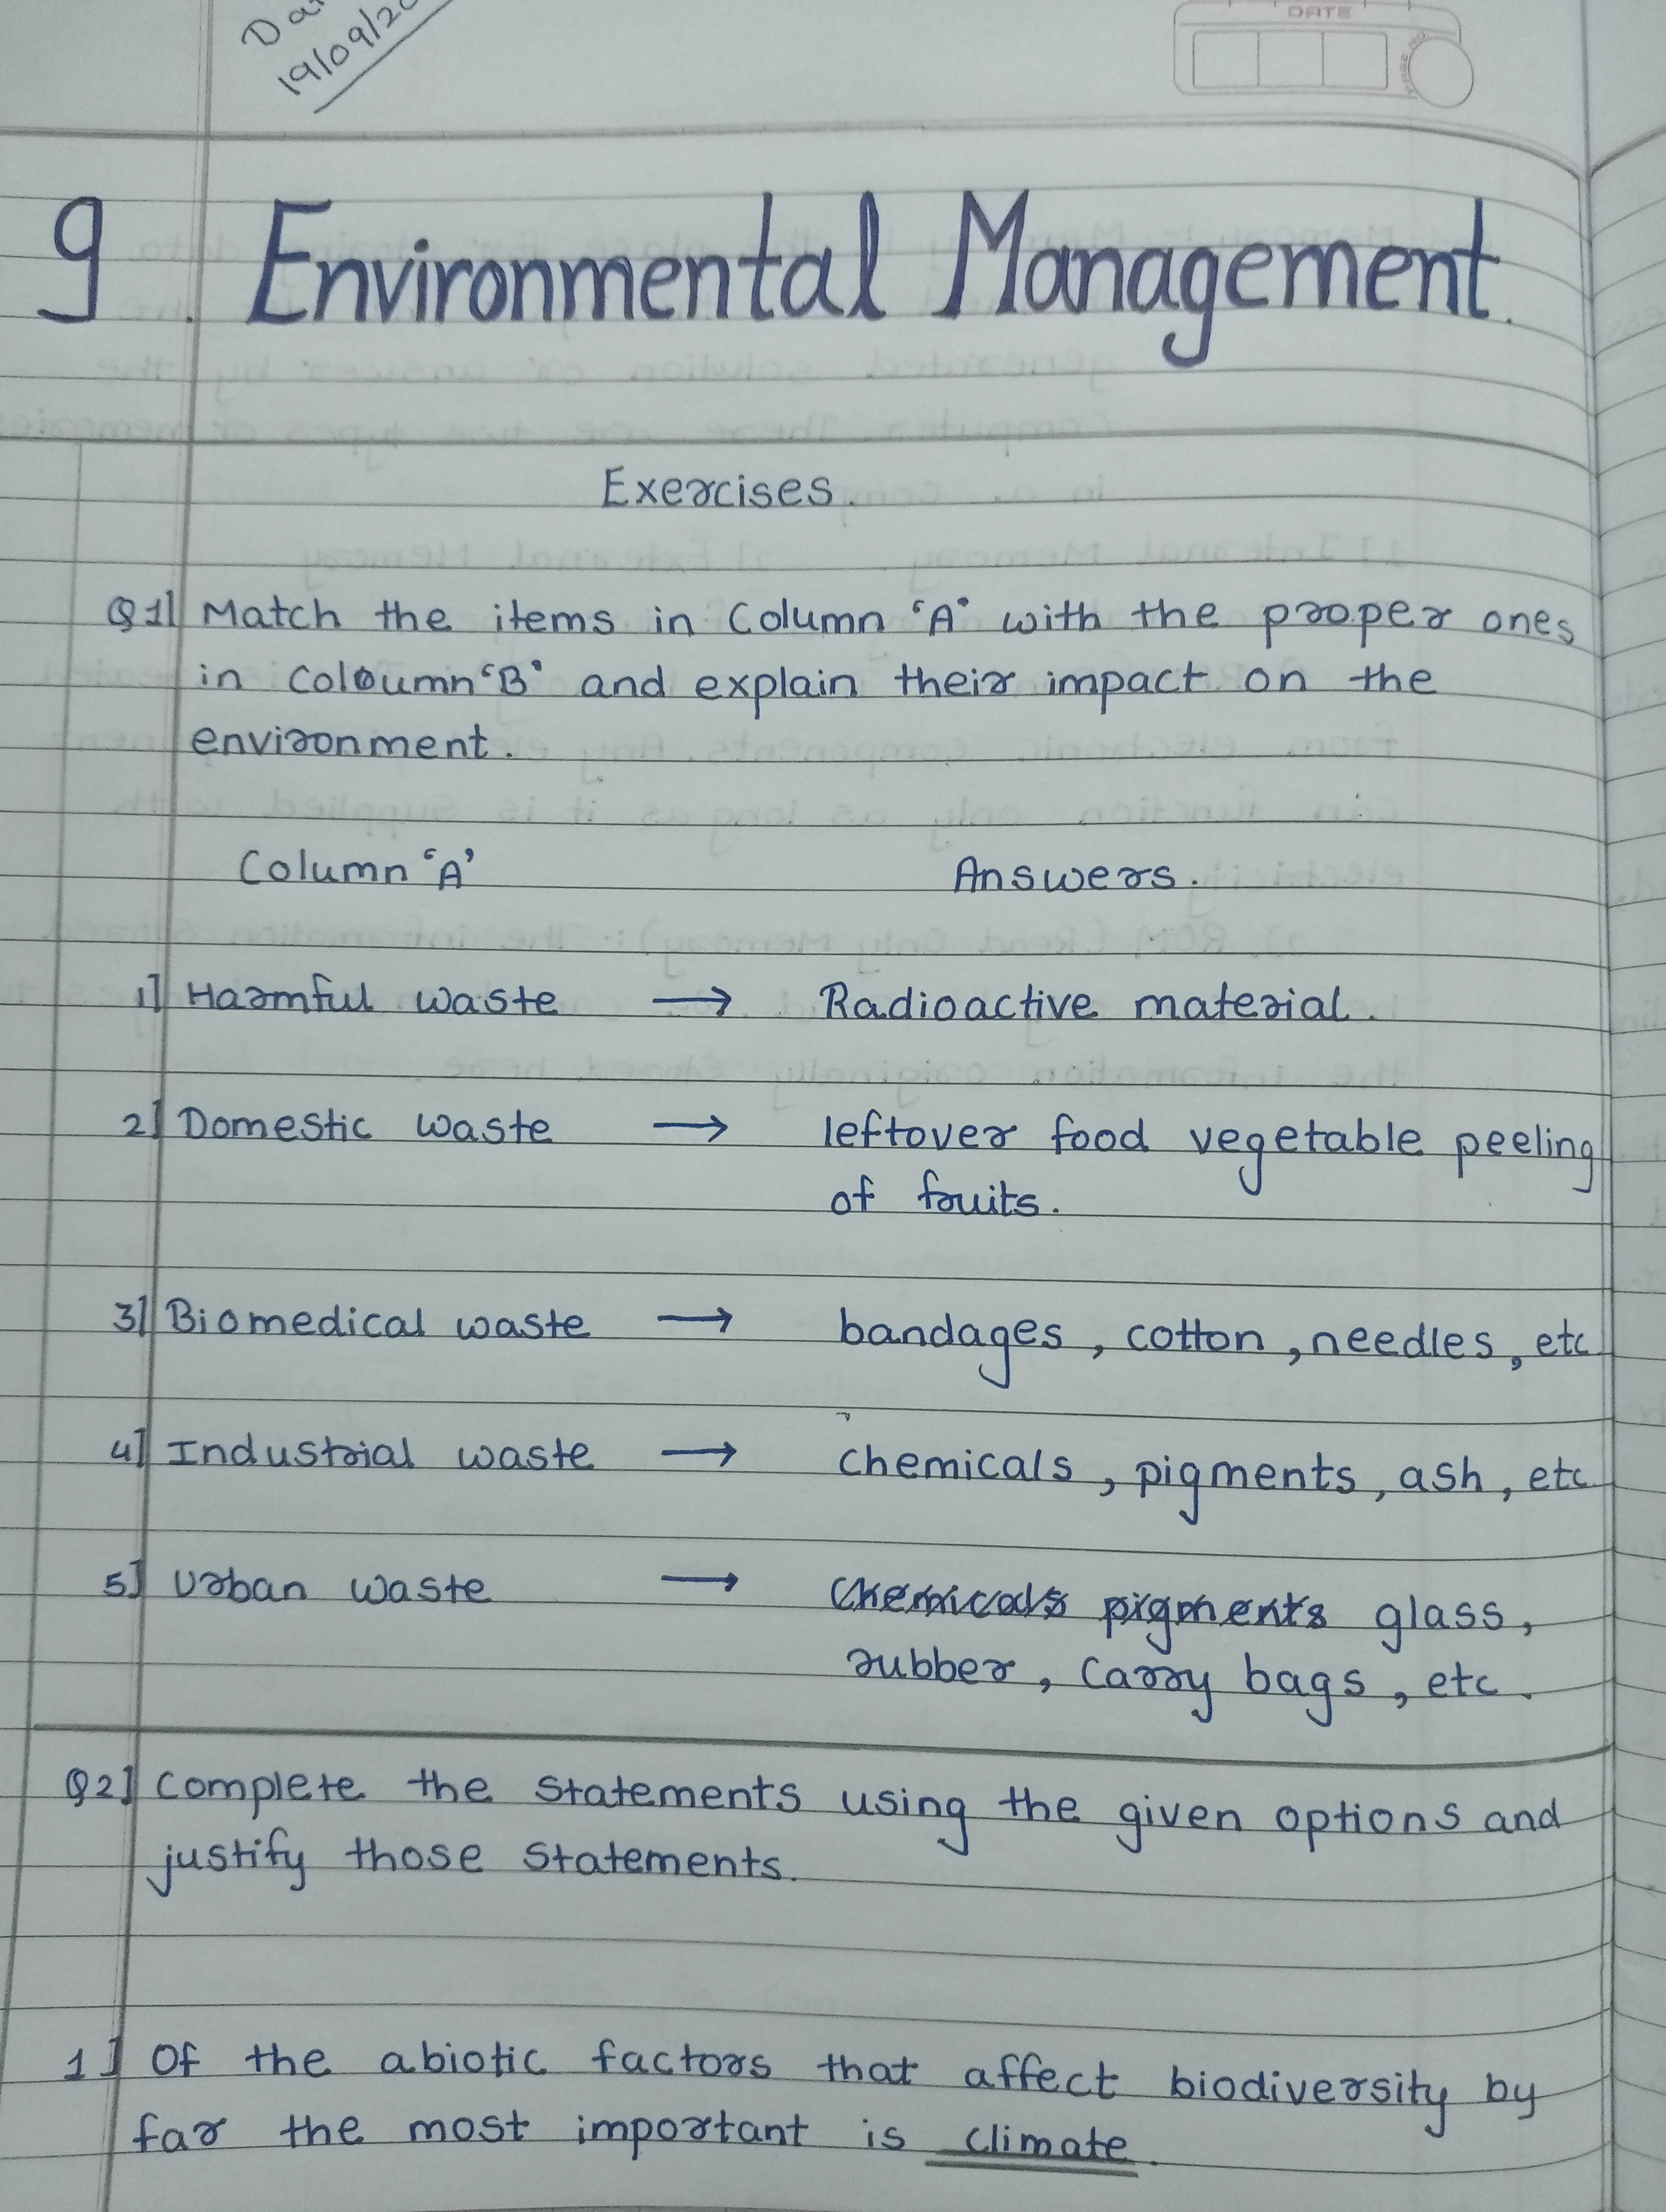 19/09/20
DATE
9. Environmental Management.
Exercises.
Q1] Match the items in Column 'A' with the proper ones
in coloumn 'B' and explain their impact on the
environment.
Column 'A' Answers.
1] Harmful waste → Radioactive material.
2] Domestic waste → leftover food vegetable peeling
of fruits.
3] Biomedical waste → bandages, cotton, needles, etc
4] Industrial waste → chemicals, pigments, ash, etc
5] Urban waste → chemicals pigments glass,
rubber, carry bags, etc.
Q2] Complete the statements using the given options and
justify those statements.
1] Of the abiotic factors that affect biodiversity by
far the most important is climate.